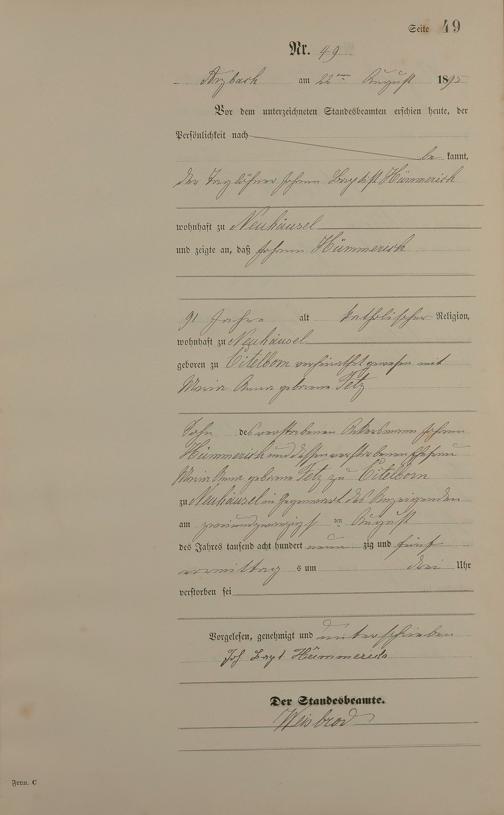 Seite 49
Nr. 49
Arzbach am 22ten August 1895
Vor dem unterzeichneten Standesbeamten erschien heute, der
Persönlichkeit nach
be kannt,
der Taglöhner Johann Baptist Hümmerich
wohnhaft zu Neuhäusel
und zeigte an, daß Johann Hümmerich
91 Jahre alt katholischer Religion,
wohnhaft zu Neuhäusel
geboren zu Eitelborn verheirathet gewesen mit
Maria Anna geborene
Sohn des verstorbenen Ackersmann Johann
Hümmerich und dessen verstorbenen Ehefrau
Maria Anna geborene zu Eitelborn
zu Neuhäusel in Gegenwart des Anzeigenden
am zweiundzwanzigsten August
des Jahres tausend acht hundert neun zig und fünf
vormittag s um drei Uhr
verstorben sei
Vorgelesen, genehmigt und unterschrieben
Joh Bapt Hümmerich
Der Standesbeamte.
Weisbrod
Form. C